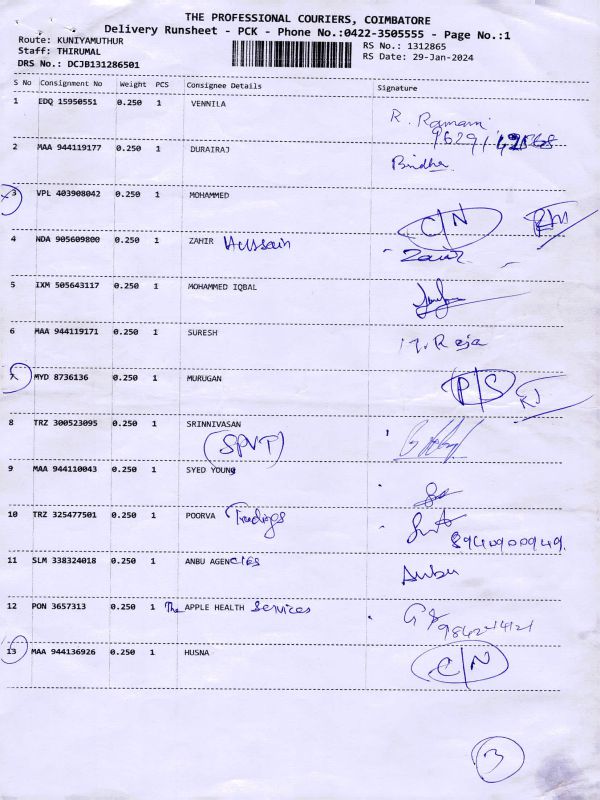 THE PROFESSIONAL COURIERS, COIMBATORE
Delivery Runsheet - PCK - Phone No.:0422-3505555 - Page No.:1
Route: KUNIYAMUTHUR
Staff: THIRUMAL
DRS No.: DCJB131286501
RS No.: 1312865
RS Date: 29-Jan-2024
S No Consignment No Weight PCS Consignee Details Signature
1 EDQ 15950551 0.250 1 VENNILA R. Ramani
2 MAA 944119177 0.250 1 DURAIRAJ Bindha
3 VPL 403908042 0.250 1 MOHAMMED C/N
4 NDA 905609800 0.250 1 ZAHIR Hussain Zahir
5 IXM 505643117 0.250 1 MOHAMMED IQBAL
6 MAA 944119171 0.250 1 SURESH M. Raja
7 MYD 8736136 0.250 1 MURUGAN P/S
8 TRZ 300523095 0.250 1 SRINNIVASAN
(SPVT)
9 MAA 944110043 0.250 1 SYED YOUNG
10 TRZ 325477501 0.250 1 POORVA Tradings
8940900949.
11 SLM 338324018 0.250 1 ANBU AGENCIES Anbu
12 PON 3657313 0.250 1 The APPLE HEALTH Services
13 MAA 944136926 0.250 1 HUSNA C/N
3